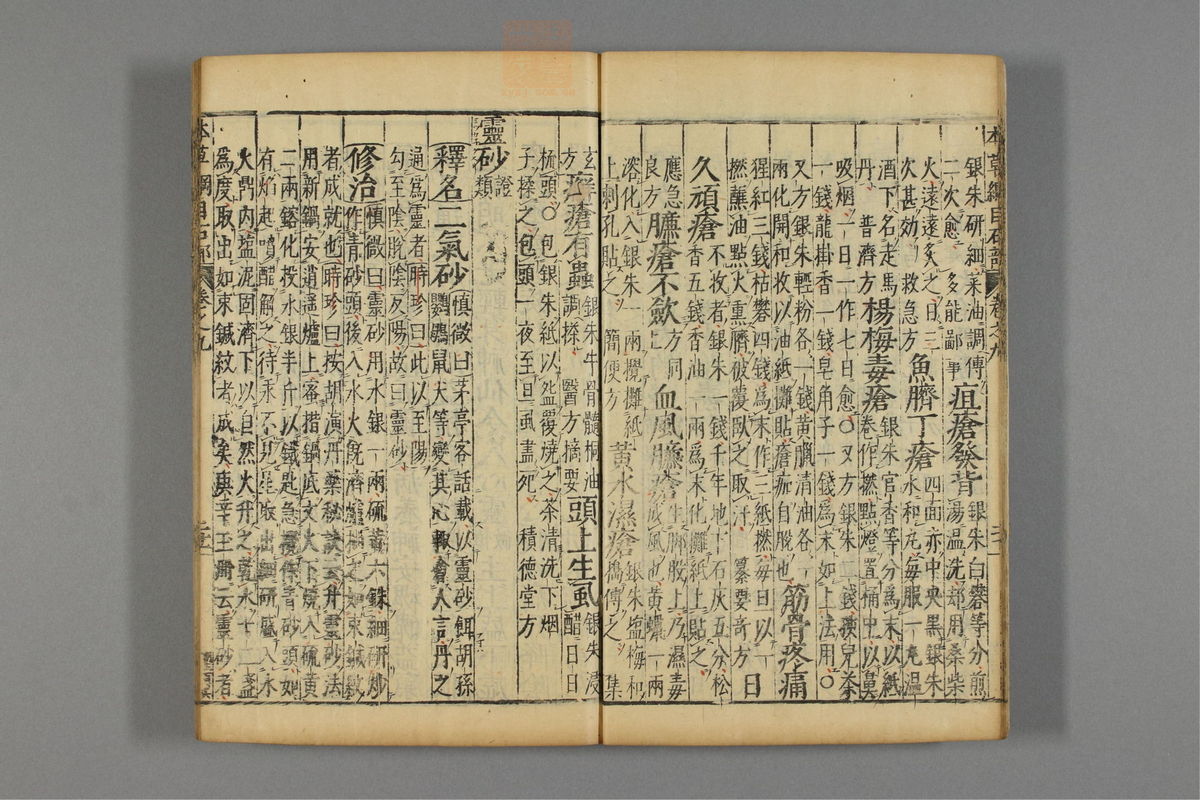 本草綱目石部 卷之九
銀朱研細枣油調傅 疽瘡發背 銀朱白礬等分煎
二次愈 多能鄙事 湯温洗却用桑柴
火遠遠炙之日三 魚臍丁瘡 四面赤中央黑銀朱
次甚効 救急方 水和丸每服一丸温
酒下名走馬 楊梅毒瘡 銀朱官香等分為末以紙
丹 普濟方 卷作撚點燈置桶中以鼻
吸烟一日一作七日愈○又方銀朱二錢孩兒茶
一錢龍掛香一錢皂角子一錢為末如上法用○
又方銀朱輕粉各一錢黃臘清油各一 筋骨疼痛
兩化開和收以油紙攤貼瘡痂自脫也
猩紅三錢枯礬四錢為末作三紙撚每日以一
撚蘸油點火熏臍被覆臥之取汗 纂要奇方 日
久頑瘡 不收者銀朱一錢千年地下石灰五分松
香五錢香油一兩為末化攤紙上貼之
應急 臁瘡不歛 方同上 血風臁瘡 生脚股上乃濕毒
良方 成風也黃蠟一兩
溶化入銀朱一兩攪攤紙 黃水濕瘡 銀朱塩梅和
上刺孔貼之 簡便方 搗傅之 集
玄方 癬瘡有蟲 銀朱牛骨髓桐油 頭上生虱 銀朱浸
調搽 醫方摘要 醋日日
梳頭○包銀朱紙以盌覆燒之茶清洗下烟
子搽之包頭一夜至旦虱盡死 積德堂方
靈砂 證類
釋名 二氣砂 慎微曰茅亭客話載以靈砂餌胡孫
鸚鵡鼠犬等變其心輒會人言丹之
通為靈者時珍曰此以至陽
勾至陰脫陰反陽故曰靈砂
修治 慎微曰靈砂用水銀一兩硫黃六銖細研炒
作青砂頭後入水火既濟爐抽之如束鍼紋
者成就也時珍曰按胡演丹藥秘訣云升靈砂法
用新鍋安逍遥爐上蜜揩鍋底文火下燒入硫黃
二兩鎔化投水銀半斤以鐵匙急攪作青砂頭如
有焰起噴醋解之待汞不見星取出細研盛入水
火鼎内塩泥固濟下以自然火升之乾水十二盞
為度取出如束鍼紋者成矣庚辛玉册云靈砂者
本草綱目石部 卷之九